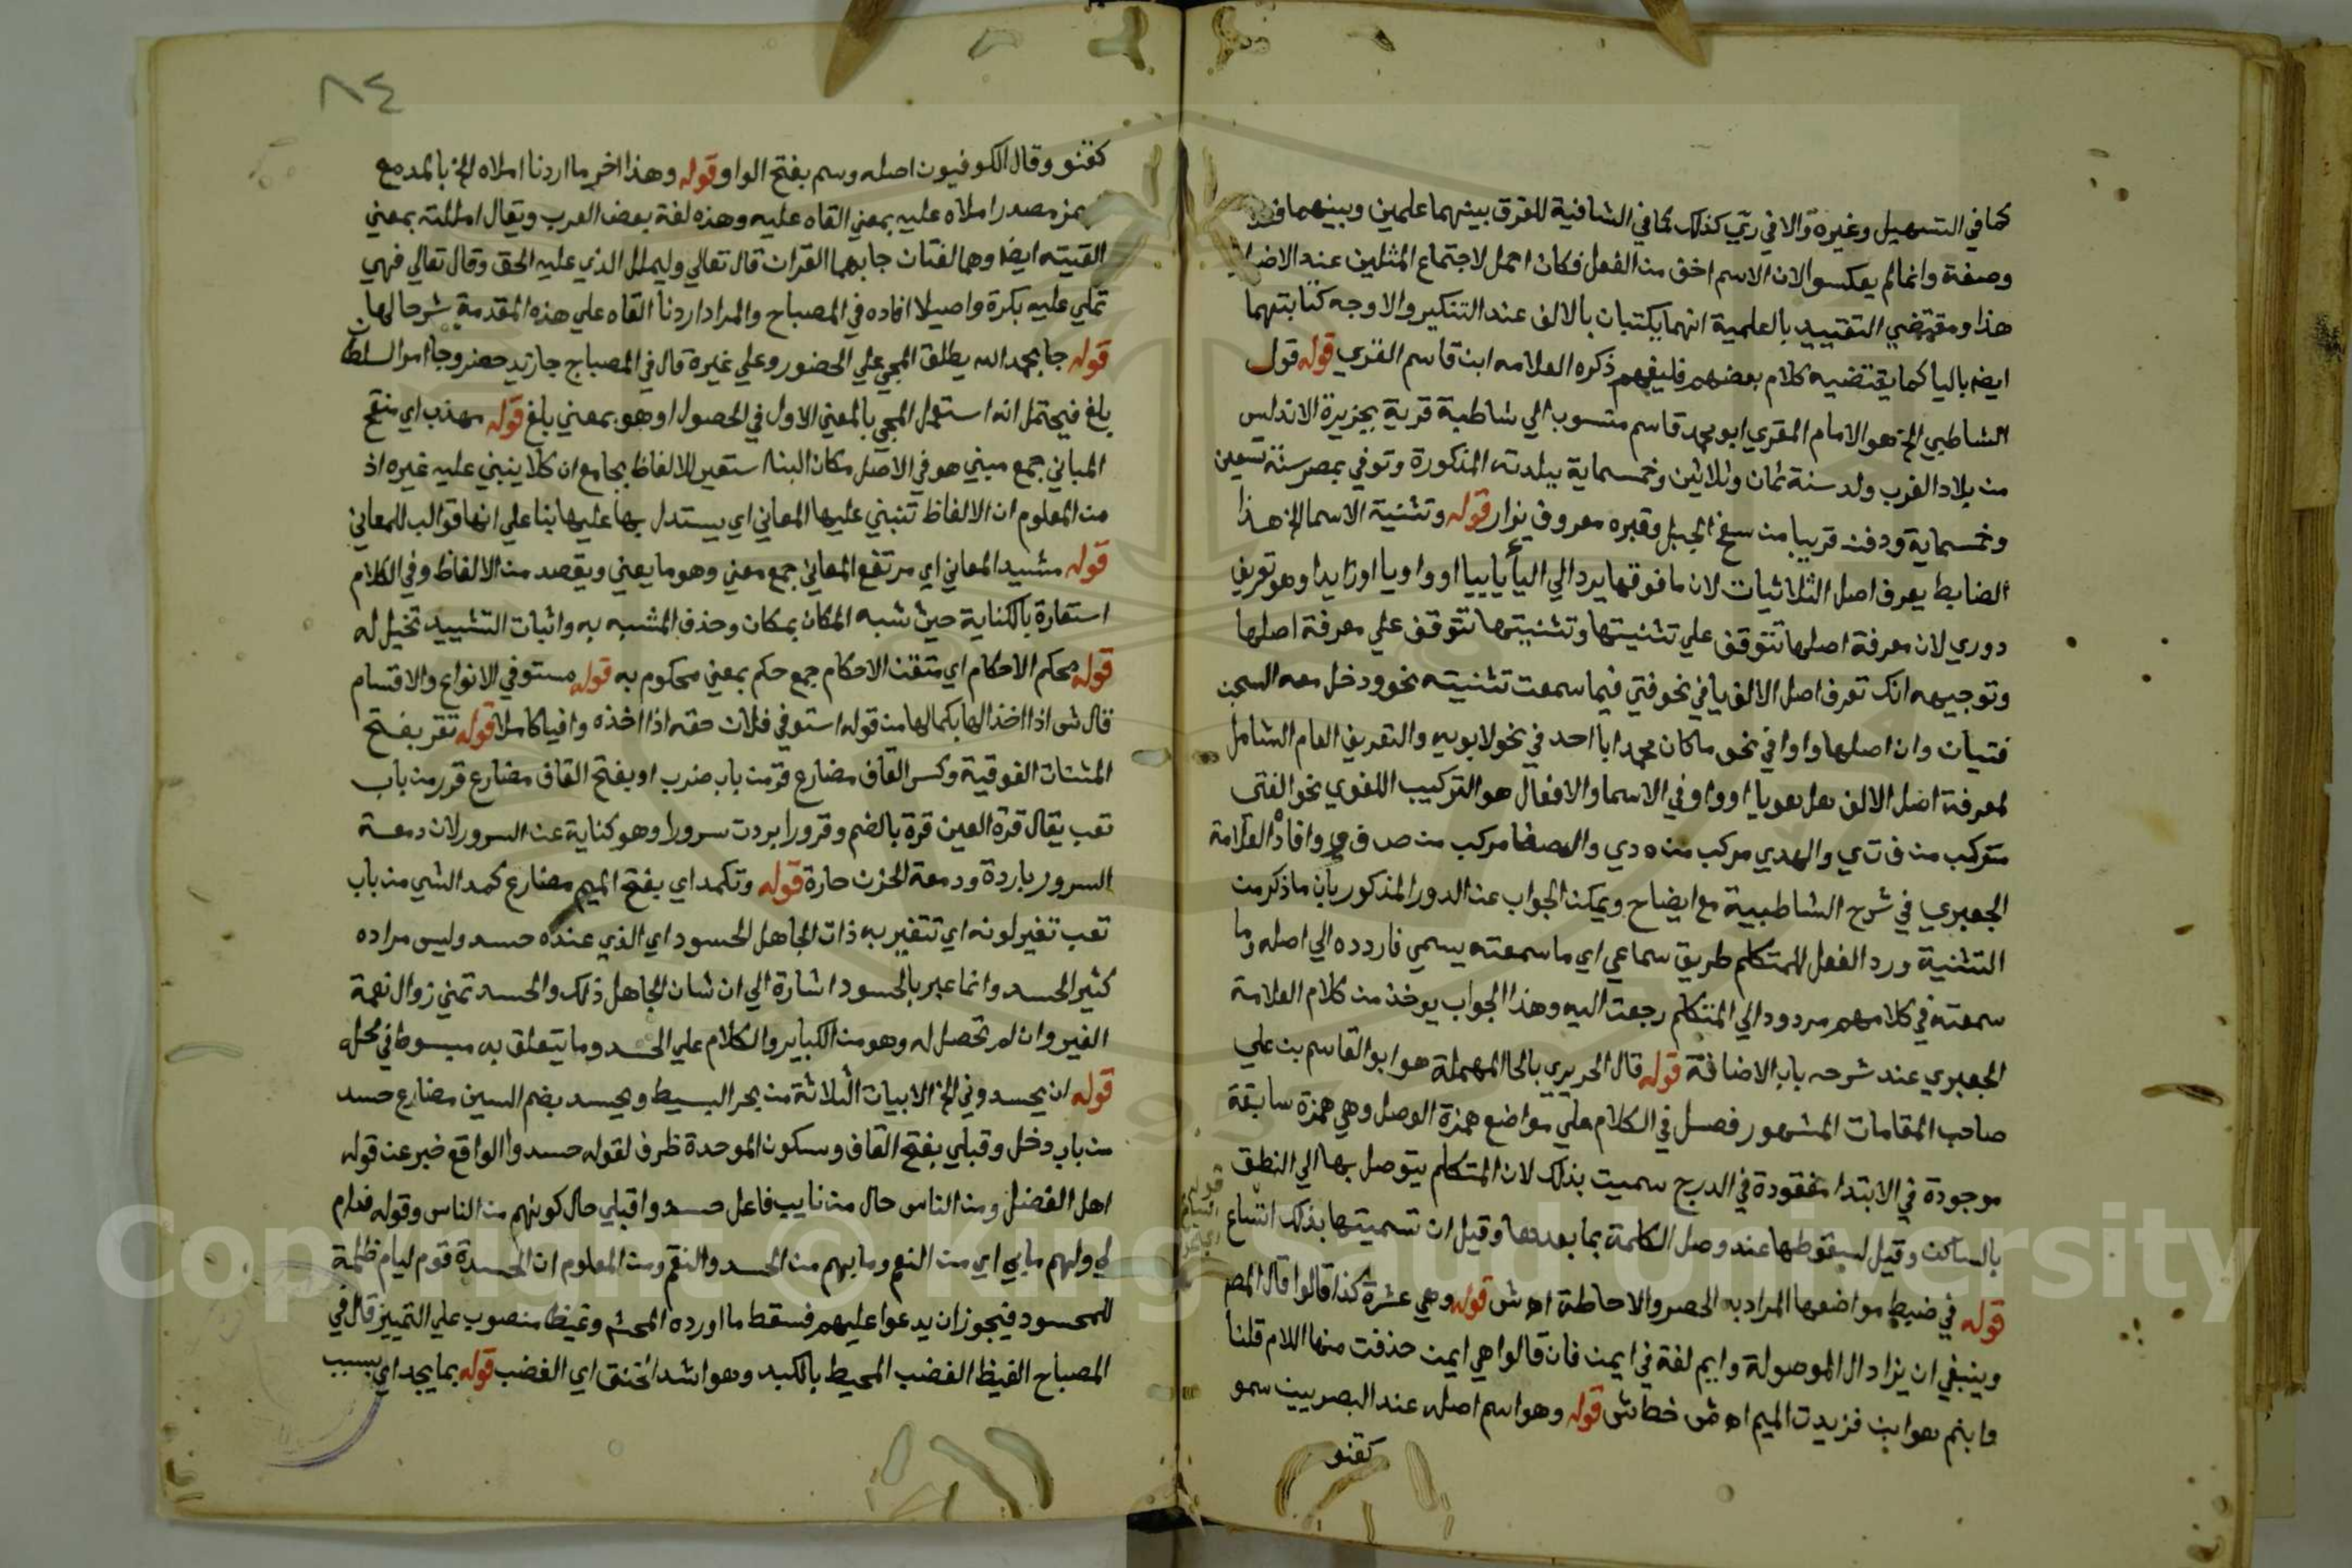 كما في التسهيل وغيره والا في ريّ كذلك كما في الشافية للفرق بينهما علمين وبينهما
وصفة وانما لم يعكسوا لان الاسم اخف من الفعل فكان احمل لاجتماع المثلين عند
هذا ومقتضي التقييد بالعلمية انهما يكتبان بالالف عند التنكير والاوجه كتابتهما
ايضا باليا كما يقتضيه كلام بعضهم فليفهم ذكره العلامه ابن قاسم الغزي قوله قول
الشاطبي الخ هو الامام المقري ابو محمد قاسم منسوب الي شاطبة قرية بجزيرة الاندلس
من بلاد الغرب ولد سنة ثمان وثلاثين وخمسماية ببلدته المذكورة وتوفي بمصر سنة تسعين
وخمسماية ودفن قريبا من سفح الجبل وقبره معروف يزار قوله وتثنية الاسما الخ هذا
الضابط يعرف اصل الثلاثيات لان ما فوقها يرد الي اليا يا ييا او واويا او زايدا وهو تعريف
دوري لان معرفة اصلها تتوقف علي تثنيتها وتثنيتها تتوقف علي معرفة اصلها
وتوجيهه انك تعرف اصل الالف يا في نحو فتي فيما سمعت تثنيته نحو ودخل معه السجن
فتيان وان اصلها واوا في نحو ما كان محمد ابا احد في نحو لابويه والتعريف العام الشامل
لمعرفة اصل الالف هل هو يا او واو في الاسما والافعال هو التركيب اللغوي نحو الفتى
متركب من ف ت ي والهدي مركب من ه د ي والصفا مركب من ص ف و وافاد العلامة
الجعبري في شرح الشاطبية مع ايضاح ويمكن الجواب عن الدور المذكور بان ما ذكر من
التثنية ورد الفعل للمتكلم طريق سماعي اي ما سمعته يسمي فاردده الي اصله وما
سمعته في كلامهم مردودا الي المتكلم رجعت اليه وهذا الجواب يوخذ من كلام العلامة
الجعبري عند شرحه باب الاضافة قوله قال الحريري بالحا المهملة هو ابو القاسم بن علي
صاحب المقامات المشهور فصل في الكلام علي مواضع همزة الوصل وهي همزة سابقة
موجودة في الابتدا مفقودة في الدرج سميت بذلك لان المتكلم يتوصل بها الي النطق
بالساكن وقيل لسقوطها عند وصل الكلمة بما بعدها وقيل ان تسميتها بذلك اتساع
قوله في ضبط مواضعها المراد به الحصر والاحاطة اه ش قوله وهي عشرة كذا قالوا قال المص
وينبغي ان يزاد ال الموصولة وايم لغة في ايمن فان قالوا هي ايمن حذفت منها اللام قلنا
وابنم هو ابن فزيدت الميم اه ش خطاش قوله وهو اسم اصله عند البصريين سمو
كقنو
قوله
اتساع
٨٤
كقنو وقال الكوفيون اصله وسم بفتح الواو قوله وهذا اخر ما اردنا املاه الخ بالمد مع
مصدر املاه عليه بمعني القاه عليه وهذه لغة بعض العرب ويقال امللته بمعني
القيته ايضا وهما لغتان جا بهما القران قال تعالي وليملل الذي عليه الحق وقال تعالي فهي
تملي عليه بكرة واصيلا افاده في المصباح والمراد اردنا القاه علي هذه المقدمة شرحا لها
قوله جا بحمد الله يطلق المجي علي الحضور وعلي غيره قال في المصباح جا زيد حضر وجا امر السلطان
بلغ فيحتمل انه استعمل المجي بالمعني الاول في الحصول او هو بمعني بلغ قوله مهذب اي منقح
المباني جمع مبني هو في الاصل مكان البنا استعير للالفاظ بجامع ان كلا ينبني عليه غيره اذ
من المعلوم ان الالفاظ تنبني عليها المعاني اي يستدل بها عليها بنا علي انها قوالب للمعاني
قوله مشيد المعاني اي مرتفع المعاني جمع معني وهو ما يعني ويقصد من الالفاظ وفي الكلام
استعارة بالكناية حيث شبه المكان بمكان وحذف المشبه به واثبات التشييد تخيل له
قوله محكم الاحكام اي متقن الاحكام جمع حكم بمعني محكوم به قوله مستوفي الانواع والاقسام
قال ش اذا اخذ الها بكمالها من قوله استوفي فلان حقه اذا اخذه وافيا كاملا قوله تقر بفتح
المثناة الفوقية وكسر القاف مضارع قر من باب ضرب او بفتح القاف مضارع قرر من باب
تعب يقال قرة العين قرة بالضم وقرورا بردت سرورا وهو كناية عن السرور لان دمعة
السرور باردة ودمعة الحزن حارة قوله وتكمد اي بفتح الميم مضارع كمد الشي من باب
تعب تغير لونه اي تتغير به ذات الجاهل الحسود اي الذي عنده حسد وليس مراده
كثير الحسد وانما عبر بالحسود اشارة الي ان شان الجاهل ذلك والحسد تمني زوال نعمة
الغير وان لم تحصل له وهو من الكباير والكلام علي الحسد وما يتعلق به مبسوط في محله
قوله ان يحسدوني الخ الابيات الثلاثة من بحر البسيط ويحسد بضم السين مضارع حسد
من باب دخل وقبلي بفتح القاف وسكون الموحدة ظرف لقوله حسدوا الواقع خبر عن قوله
اهل الفضل ومن الناس حال من نايب فاعل حسدوا قبلي حال كونهم من الناس وقوله فدام
لي ولهم ما بي اي من النعم وما بهم من الحسد والنقم ومن المعلوم ان الحسدة قوم ليام ظلمة
للمحسود فيجوز ان يدعوا عليهم فسقط ما اورده المحشم وغيظا منصوب علي التمييز قال في
المصباح الغيظ الغضب المحيط بالكبد وهو اشد الحنق اي الغضب قوله بما يجد اي بسبب
Copyright © King Saud University